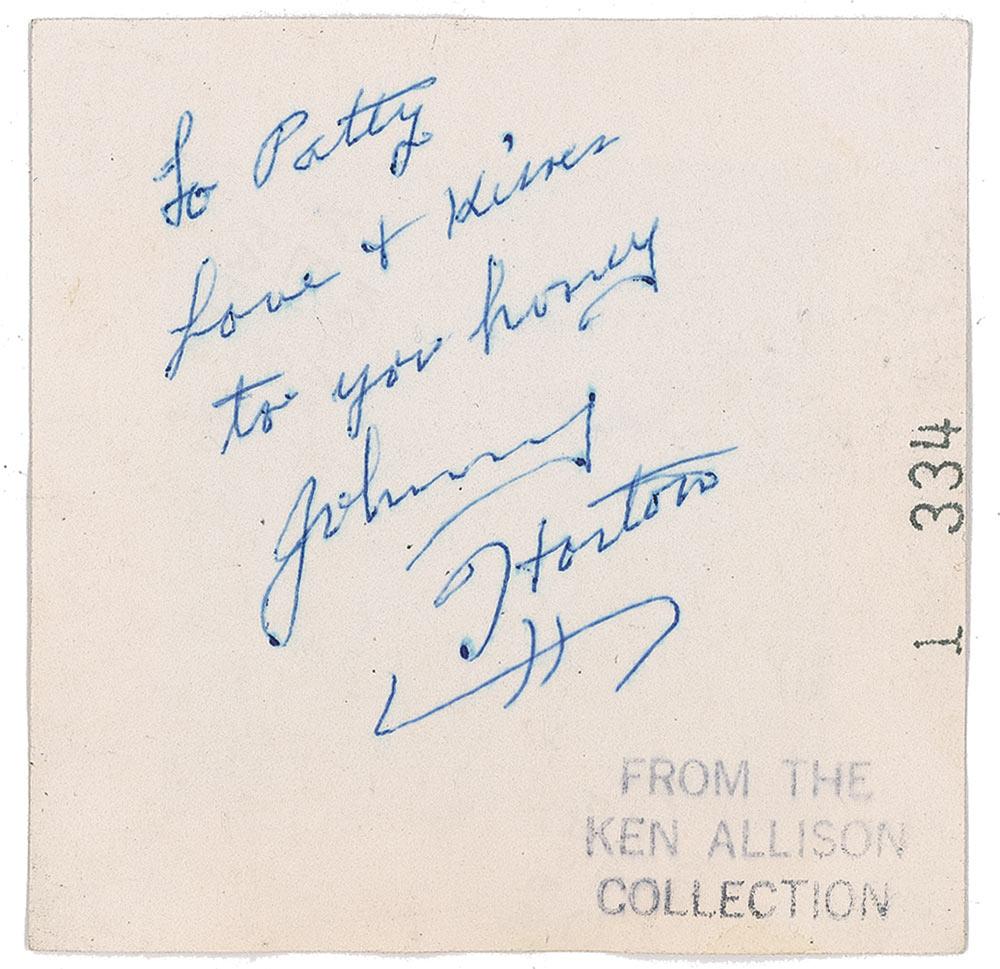 To Patty
Love + Kisses
to you honey
Johnny
Horton
1 334
FROM THE
KEN ALLISON
COLLECTION